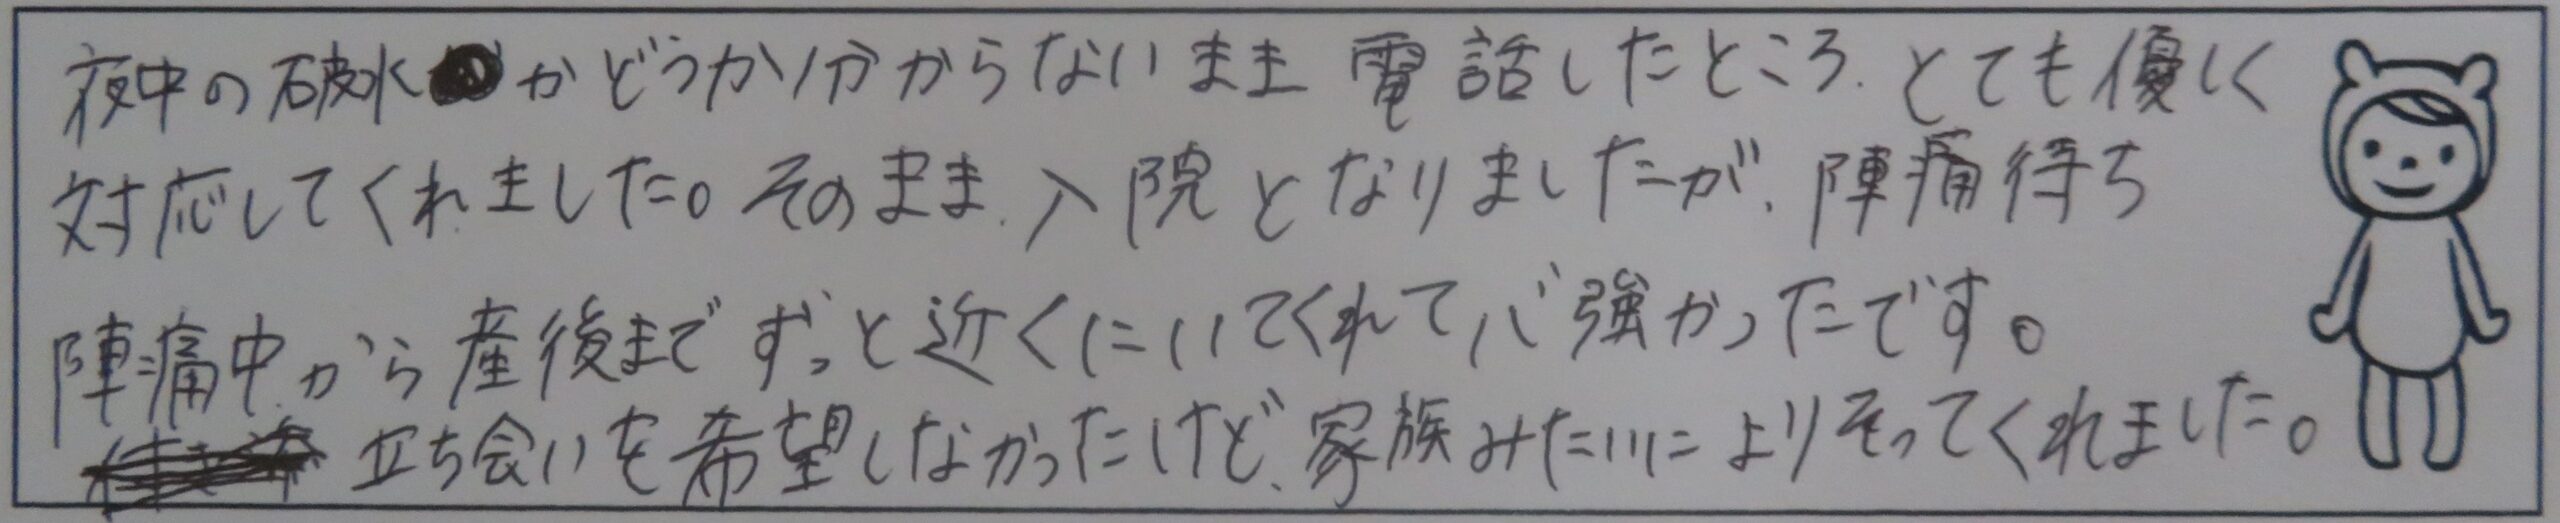 夜中の破水かどうか分からないまま電話したところ、とても優しく
対応してくれました。そのまま、入院となりましたが、陣痛待ち
陣痛中から産後までずっと近くにいてくれて心強かったです。
立ち会いを希望しなかったけど、家族みたいによりそってくれました。